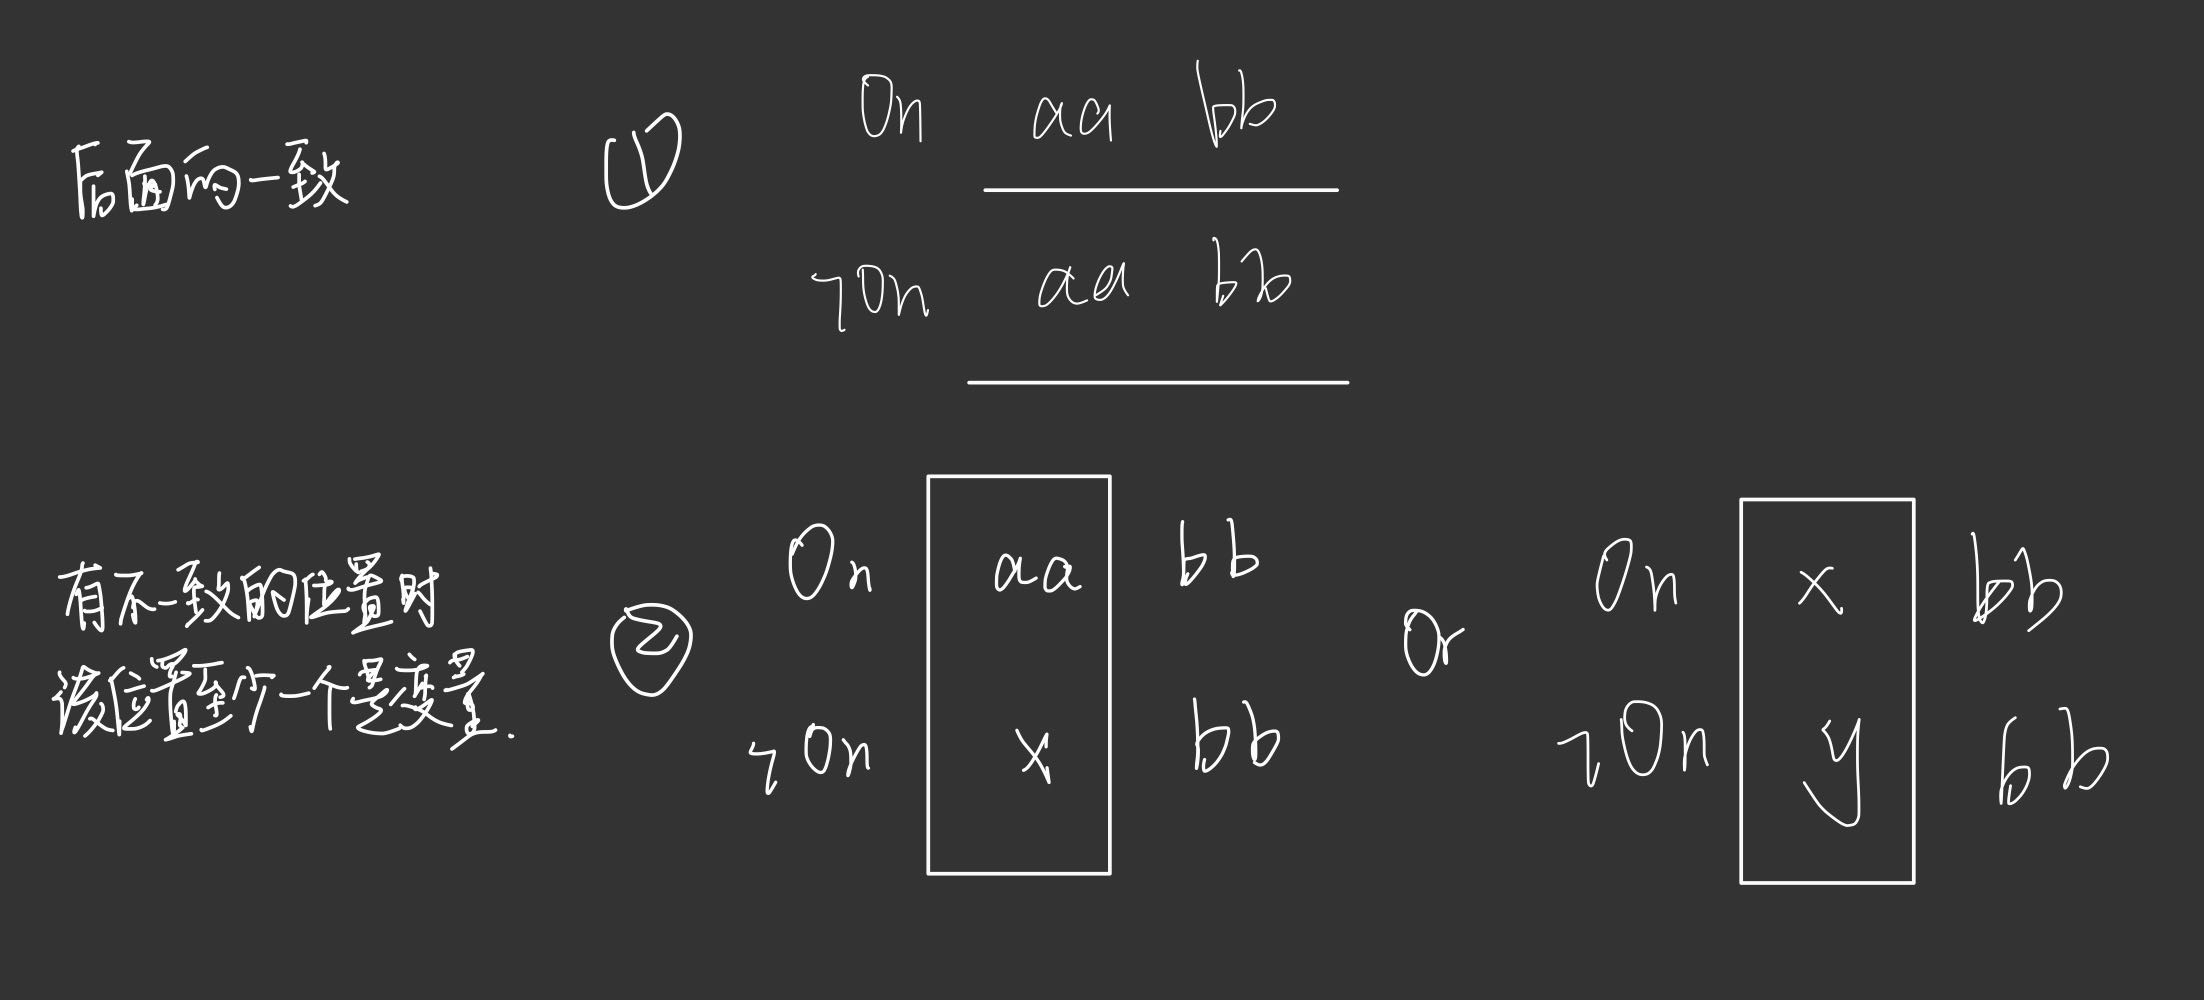 后面的一致
① On aa bb
¬On aa bb
有不一致的位置时
该位置至少一个是变量.
② On aa bb
¬On x bb
or
On x bb
¬On y bb